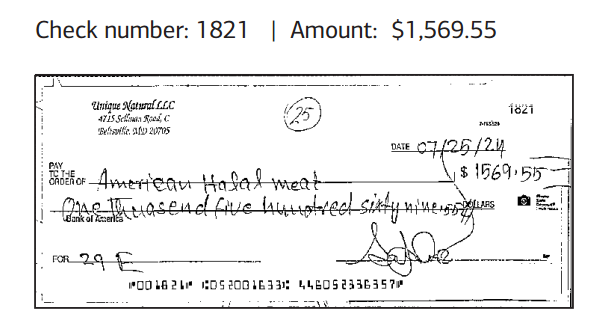 Check number: 1821 | Amount: $1,569.55
Unique Natural LLC
4715 Sellman Road, C
Beltsville, MD 20705
25
1821
DATE 07/25/24
PAY TO THE ORDER OF American Halal meat $ 1569.55
One Thuasend five hundred sixty nine. 55 DOLLARS
Bank of America
FOR 29 E
⑈001821⑈ ⑆052001633⑆ 446052336357⑈